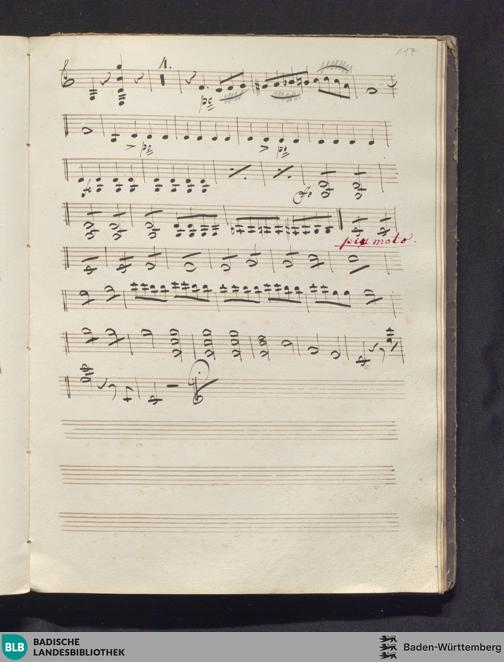 117
4.
più moto.
BLB
BADISCHE
LANDESBIBLIOTHEK
Baden-Württemberg